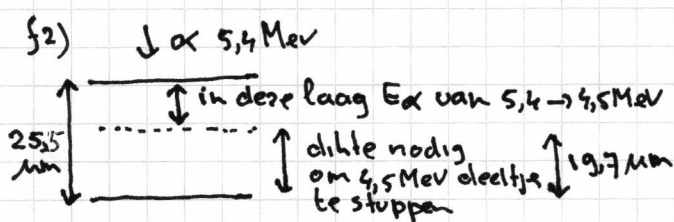 f2) ↓ α 5,4 MeV
in deze laag Eα van 5,4 → 4,5 MeV
25,5 μm
dikte nodig
om 4,5 MeV deeltje
te stuppen
19,7 μm